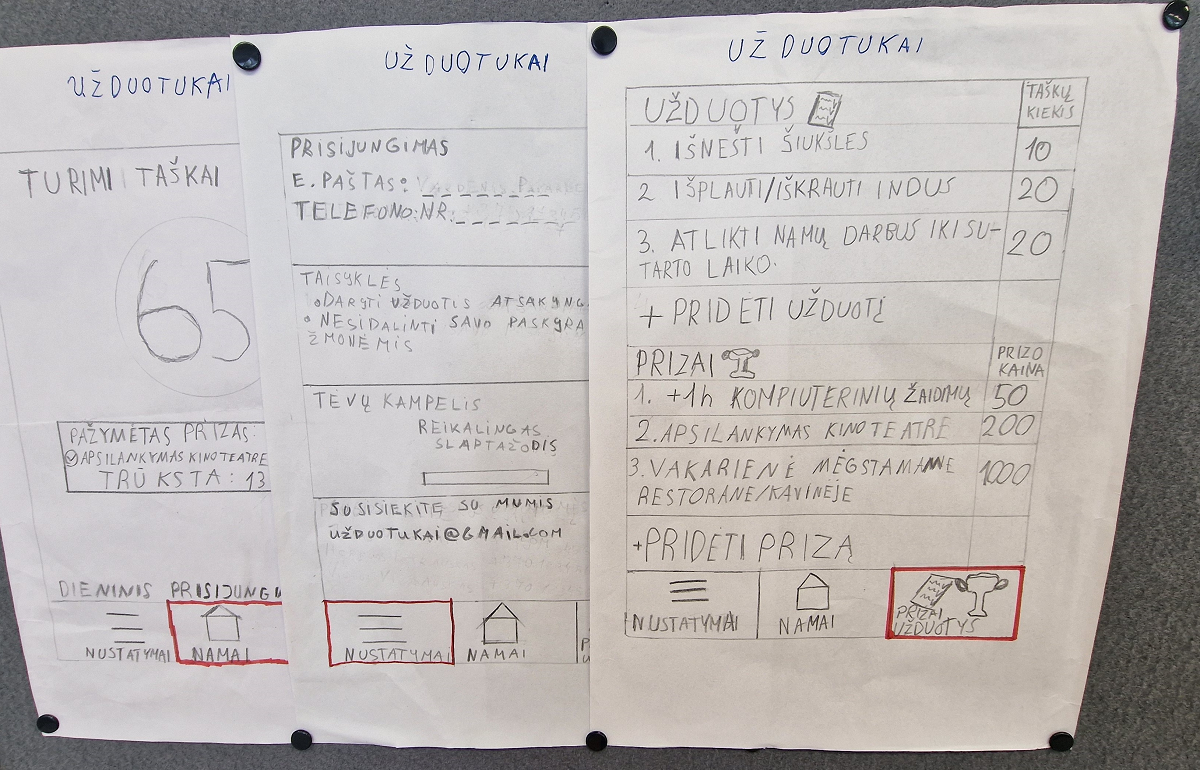 UŽDUOTUKAI
TURIMI TAŠKAI
65
PAŽYMĖTAS PRIZAS:
APSILANKYMAS KINOTEATRE
TRŪKSTA: 13
DIENINIS PRISIJUNGI
NUSTATYMAI
NAMAI
UŽDUOTUKAI
PRISIJUNGIMAS
E. PAŠTAS:
TELEFONO.NR:
TAISYKLĖS
• DARYTI UŽDUOTIS ATSAKYNG
• NESIDALINTI SAVO PASKYRA
ŽMONĖMIS
TĖVŲ KAMPELIS
REIKALINGAS
SLAPTAŽODIS
SUSISIEKITE SU MUMIS
UŽDUOTUKAI@GMAIL.COM
NUSTATYMAI
NAMAI
P
U
UŽDUOTUKAI
UŽDUOTYS
TAŠKŲ
KIEKIS
1. IŠNEŠTI ŠIUKŠLES 10
2 IŠPLAUTI/IŠKRAUTI INDUS 20
3. ATLIKTI NAMŲ DARBUS IKI SU-
TARTO LAIKO. 20
+ PRIDĖTI UŽDUOTĮ
PRIZAI
PRIZO
KAINA
1. +1h KOMPIUTERINIŲ ŽAIDIMŲ 50
2. APSILANKYMAS KINOTEATRE 200
3. VAKARIENĖ MĖGSTAMAME 1000
RESTORANE/KAVINĖJE
+PRIDĖTI PRIZĄ
NUSTATYMAI
NAMAI
PRIZAI
UŽDUOTYS